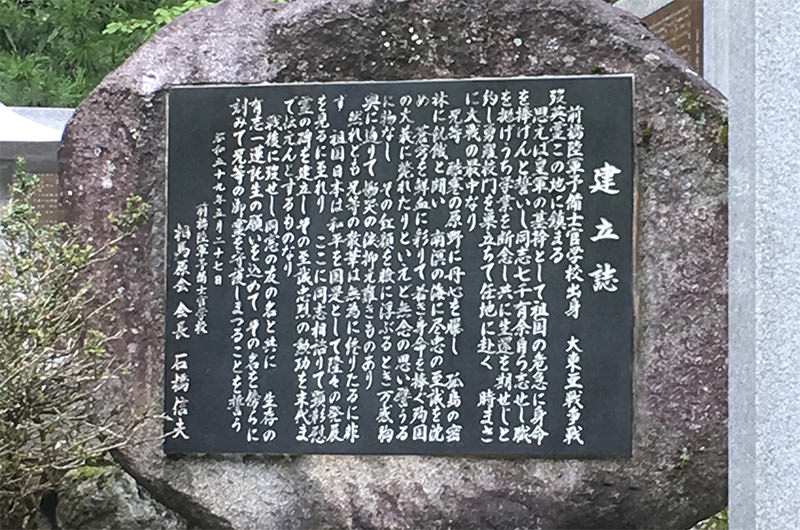 建立誌
前橋陸軍予備士官学校出身 大東亜戦争戦
歿英霊この地に鎮まる
思えば皇軍の基幹として祖国の危急に身命
を捧げんと誓いし同志七千有余自ら志せし職
を抛げうち学業を断念し共に生還を期せじと
約し勇躍校門を巣立ちて任地に赴く 時まさ
に大戦の最中なり
兄等 酷寒の原野に丹心を曝し 孤島の密
林に飢餓と闘い 南溟の海に尽忠の至誠を沈
め 蒼穹を鮮血に彩りて若き身命を捧ぐ殉国
の大義に斃れたりといえど無念の思い譬うる
に物なし その紅顔を瞼に浮ぶるとき万感胸
奥に迫りて慟哭の涙抑え難きものあり
然れども兄等の散華は無為に非
ず 祖国日本は和平を国是として隆々の発展
を見るに至れり ここに同志相諮りて顕彰慰
霊の碑を建立しその至誠忠烈の勲功を末代ま
で伝えんとするものなり
戦後に歿せし同窓の友の名と共に 生存の
有志一蓮託生の願いを込めて その名を傍らに
刻みて兄等の御霊を守護しまつることを誓う
昭和五十九年五月二十七日
前橋陸軍予備士官学校
相馬原会 会長 石橋信夫